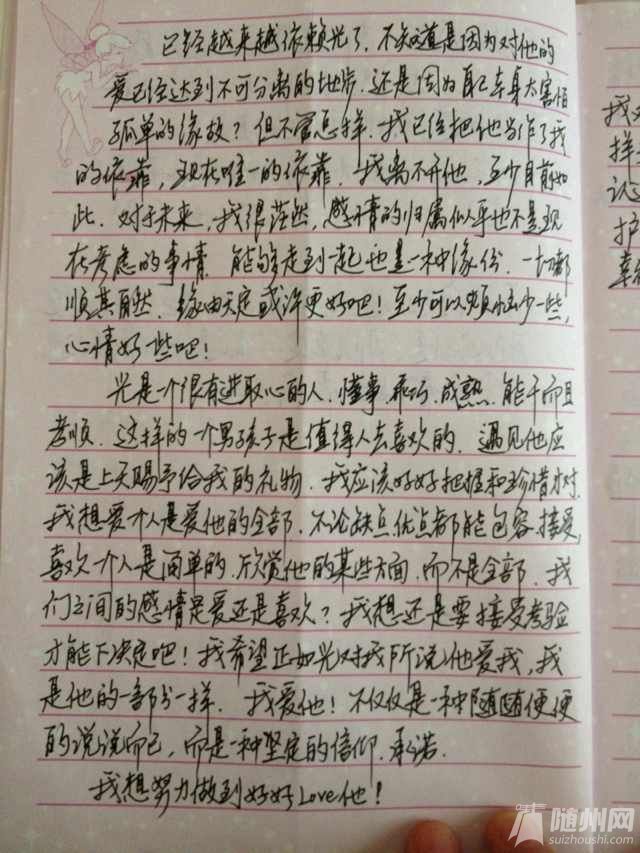 已经越来越依赖光了，不知道是因为对他的
爱已经达到不可分离的地步，还是因为自己本身太害怕
孤单的缘故？但不管怎样，我已经把他当作了我
的依靠，现在唯一的依靠，我离不开他，至少目前如
此，对于未来，我很茫然，感情的归属似乎也不是现
在考虑的事情，能够走到一起也是一种缘份，一切都
顺其自然，缘由天定或许更好吧！至少可以烦恼少一些，
心情好一些吧！
光是一个很有进取心的人，懂事，乖巧，成熟，能干而且
孝顺，这样的一个男孩子是值得人去喜欢的，遇见他应
该是上天赐予给我的礼物，我应该好好把握和珍惜才对，
我想爱一个人是爱他的全部，不论缺点优点都能包容，接受，
喜欢一个人是简单的，欣赏他的某些方面，而不是全部，我
们之间的感情是爱还是喜欢？我想还是要接受考验
才能下决定吧！我希望正如光对我所说他爱我，我
是他的一部分一样，我爱他！不仅仅是一种随随便便
的说说而已，而是一种坚定的信仰，承诺，
我想努力做到好好Love他！
我
样
护
随州网
suizhoushi.com